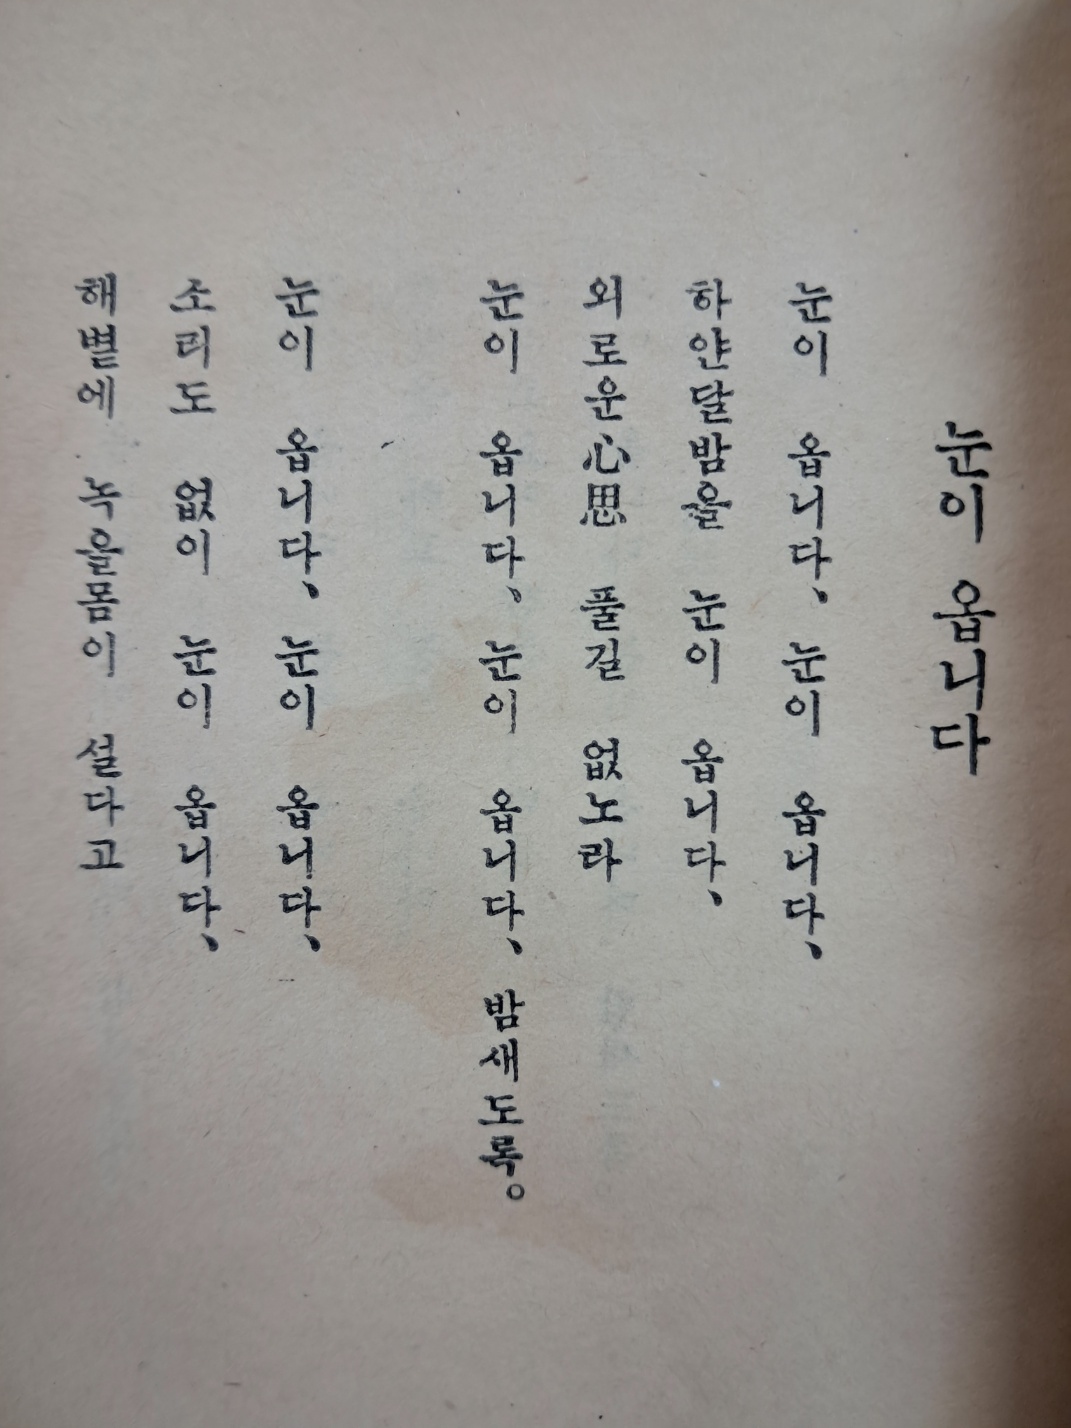 눈이 옵니다
눈이 옵니다、 눈이 옵니다、
하얀달밤을 눈이 옵니다、
외로운心思 풀길 없노라
눈이 옵니다、 눈이 옵니다、 밤새도록。
눈이 옵니다、 눈이 옵니다、
소리도 없이 눈이 옵니다、
해볕에 녹을몸이 설다고